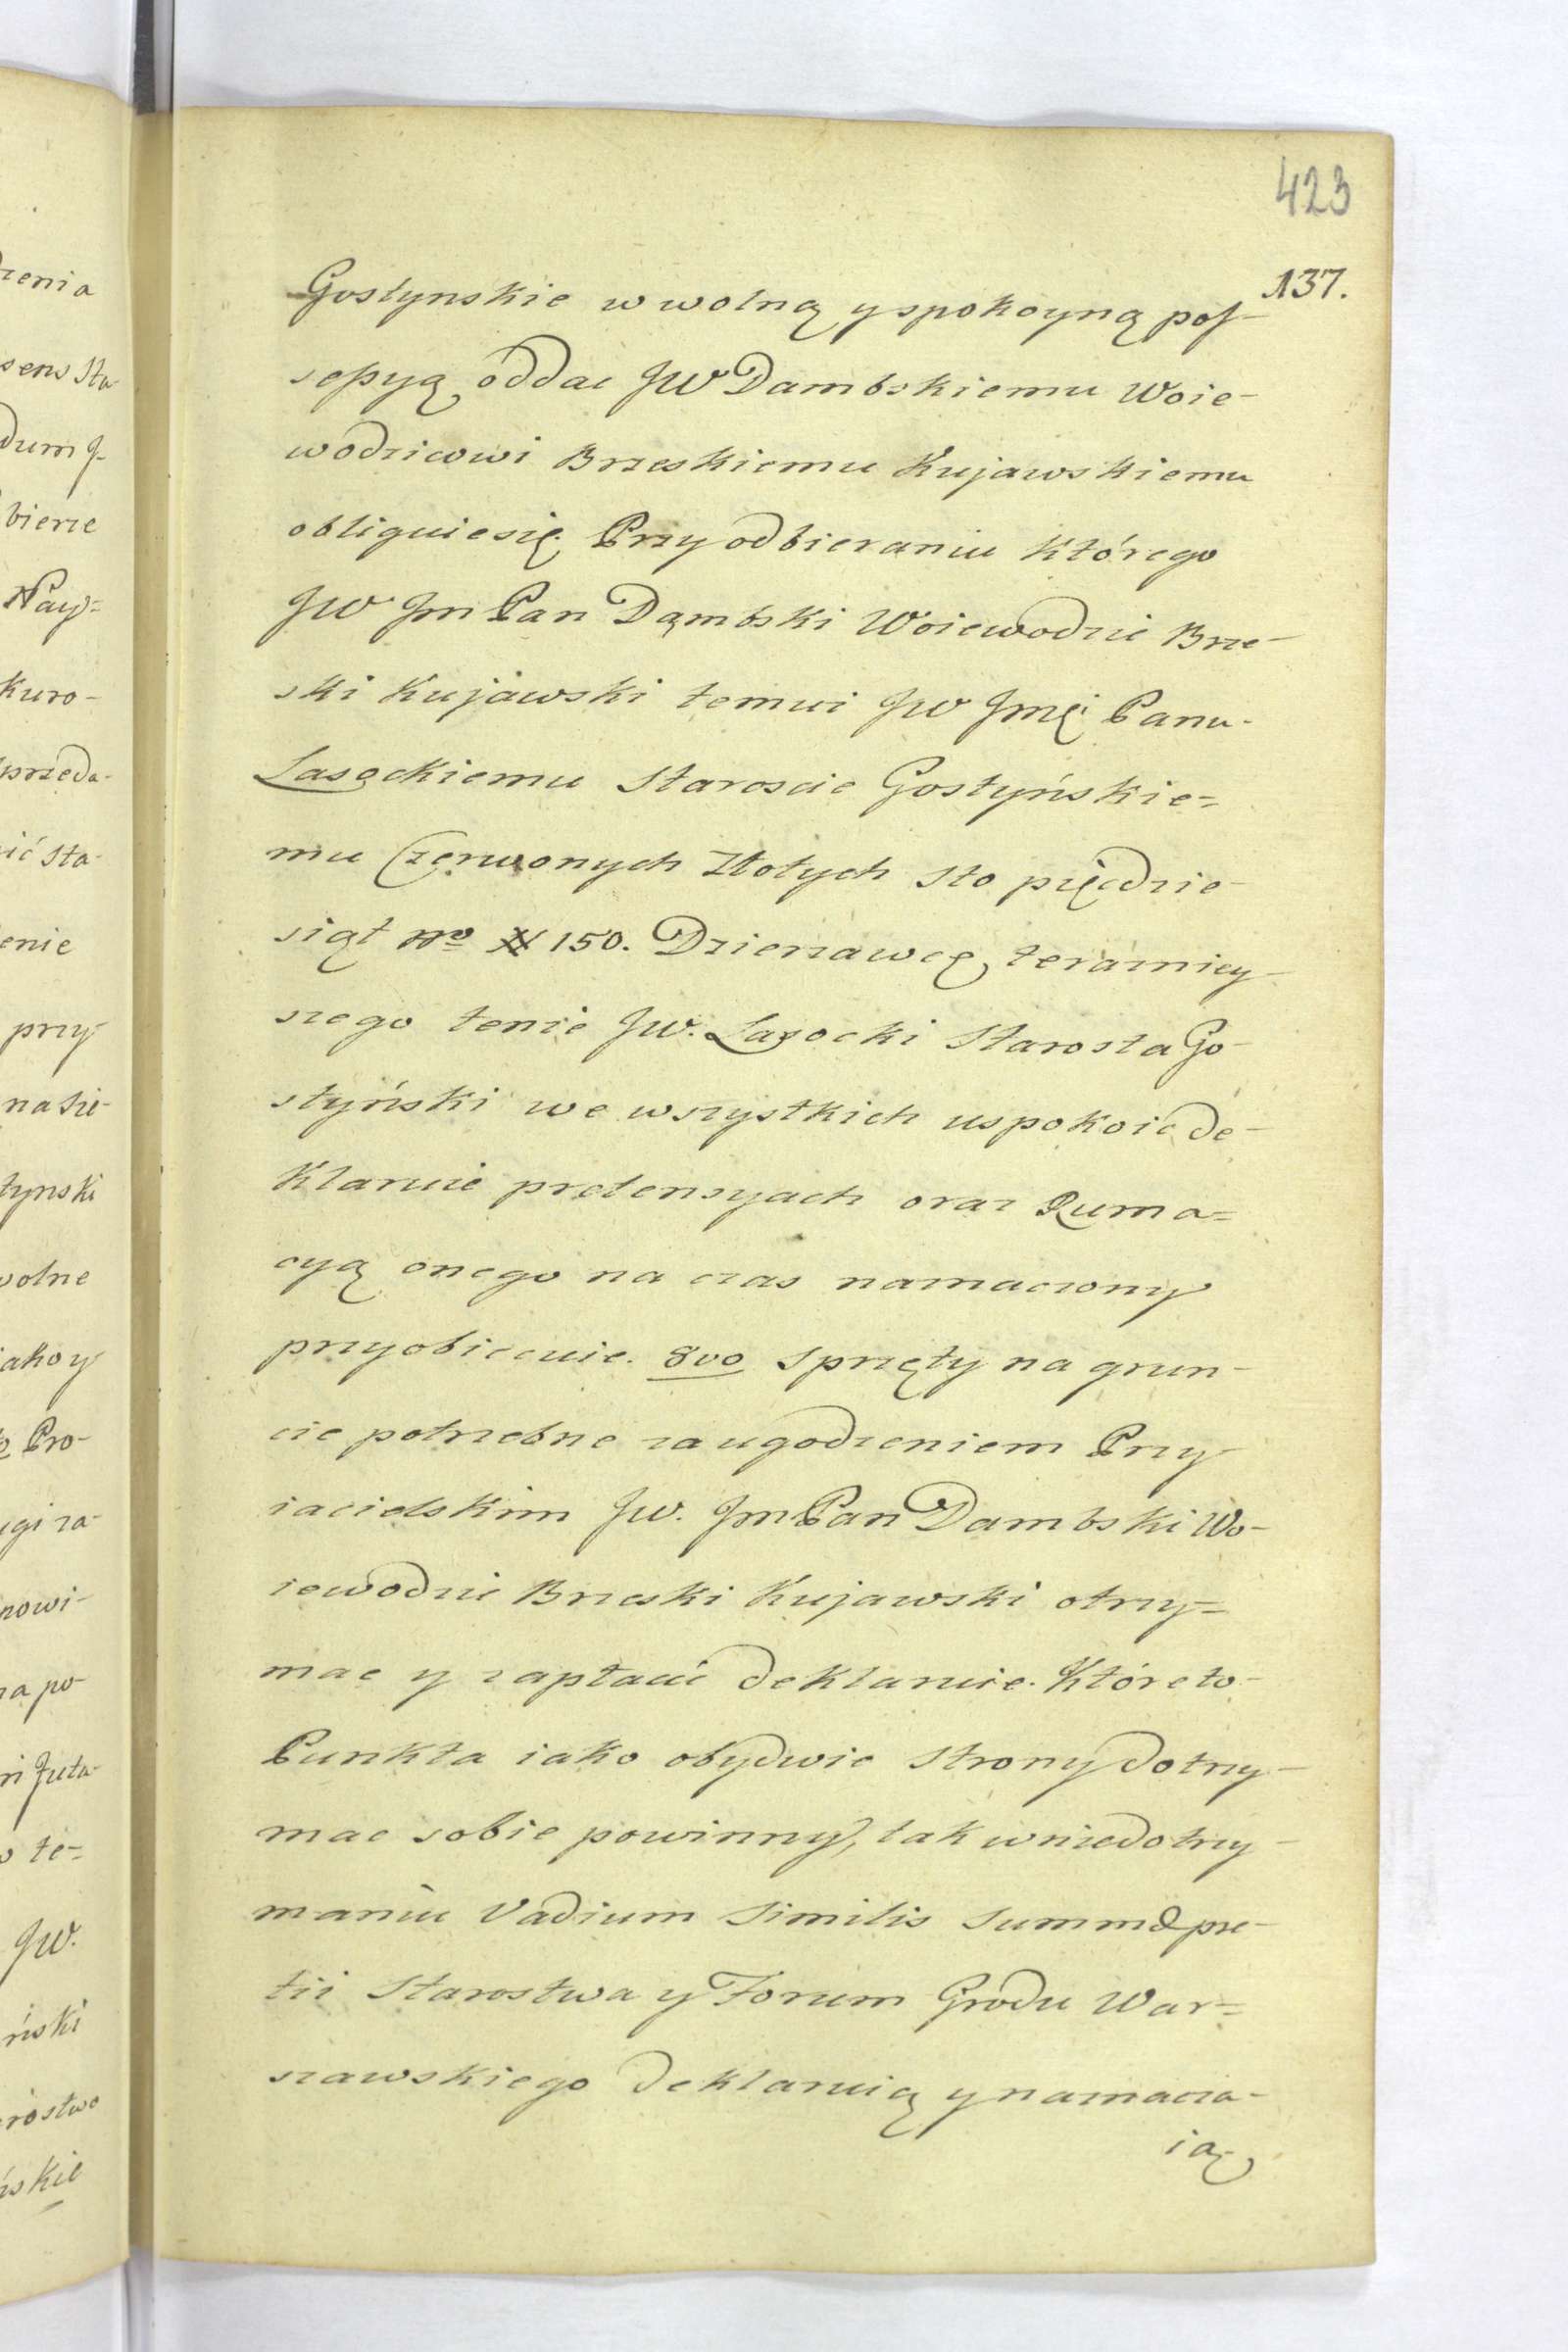 423
137.
Gostynskie w wolną y spokoyną pos-
sessyą oddac JW Dambskiemu Woie-
wodzicowi Brzeskiemu Kujawskiemu
obliguie się. Przy odbieraniu którego
JW Jm Pan Dąmbski Woiewodzic Brze-
ski Kujawski temuż JW Jmći Panu
Lasockiemu Staroscie Gostyńskie=
mu Czerwonych Złotych Sto pięcdzie-
siąt No # 150. Dzierzawcę terazniey-
szego tenże JW. Lasocki Starosta Go-
styński we wszystkich uspokoic de-
klaruie pretensyach oraz Ruma=
cyą onego na czas naznaczony
przyobiecuie. 8vo Sprzęty na grun-
cie potrzebne za ugodzeniem Przy-
iacielskim JW. Jm Pan Dambski Wo-
iewodzic Brzeski Kujawski otrzy=
mac y zapłacić deklaruie. Które to
Punkta iako obydwie Strony dotrzy-
mac sobie powinny, tak w niedotrzy-
maniu Vadium Similis Summæ pre-
tii Starostwa y Forum Grodu War=
szawskiego deklaruią y naznacza-
ią
rzenia
sens Sta-
dum J-
bierze
Nay=
Kuro-
przeda-
ić Sta-
enie
przy-
na Sze-
tynski
wolne
iako y
Pro-
ugi za-
nowi-
na po-
o te=
JW.
iński
rostwo
ńskie